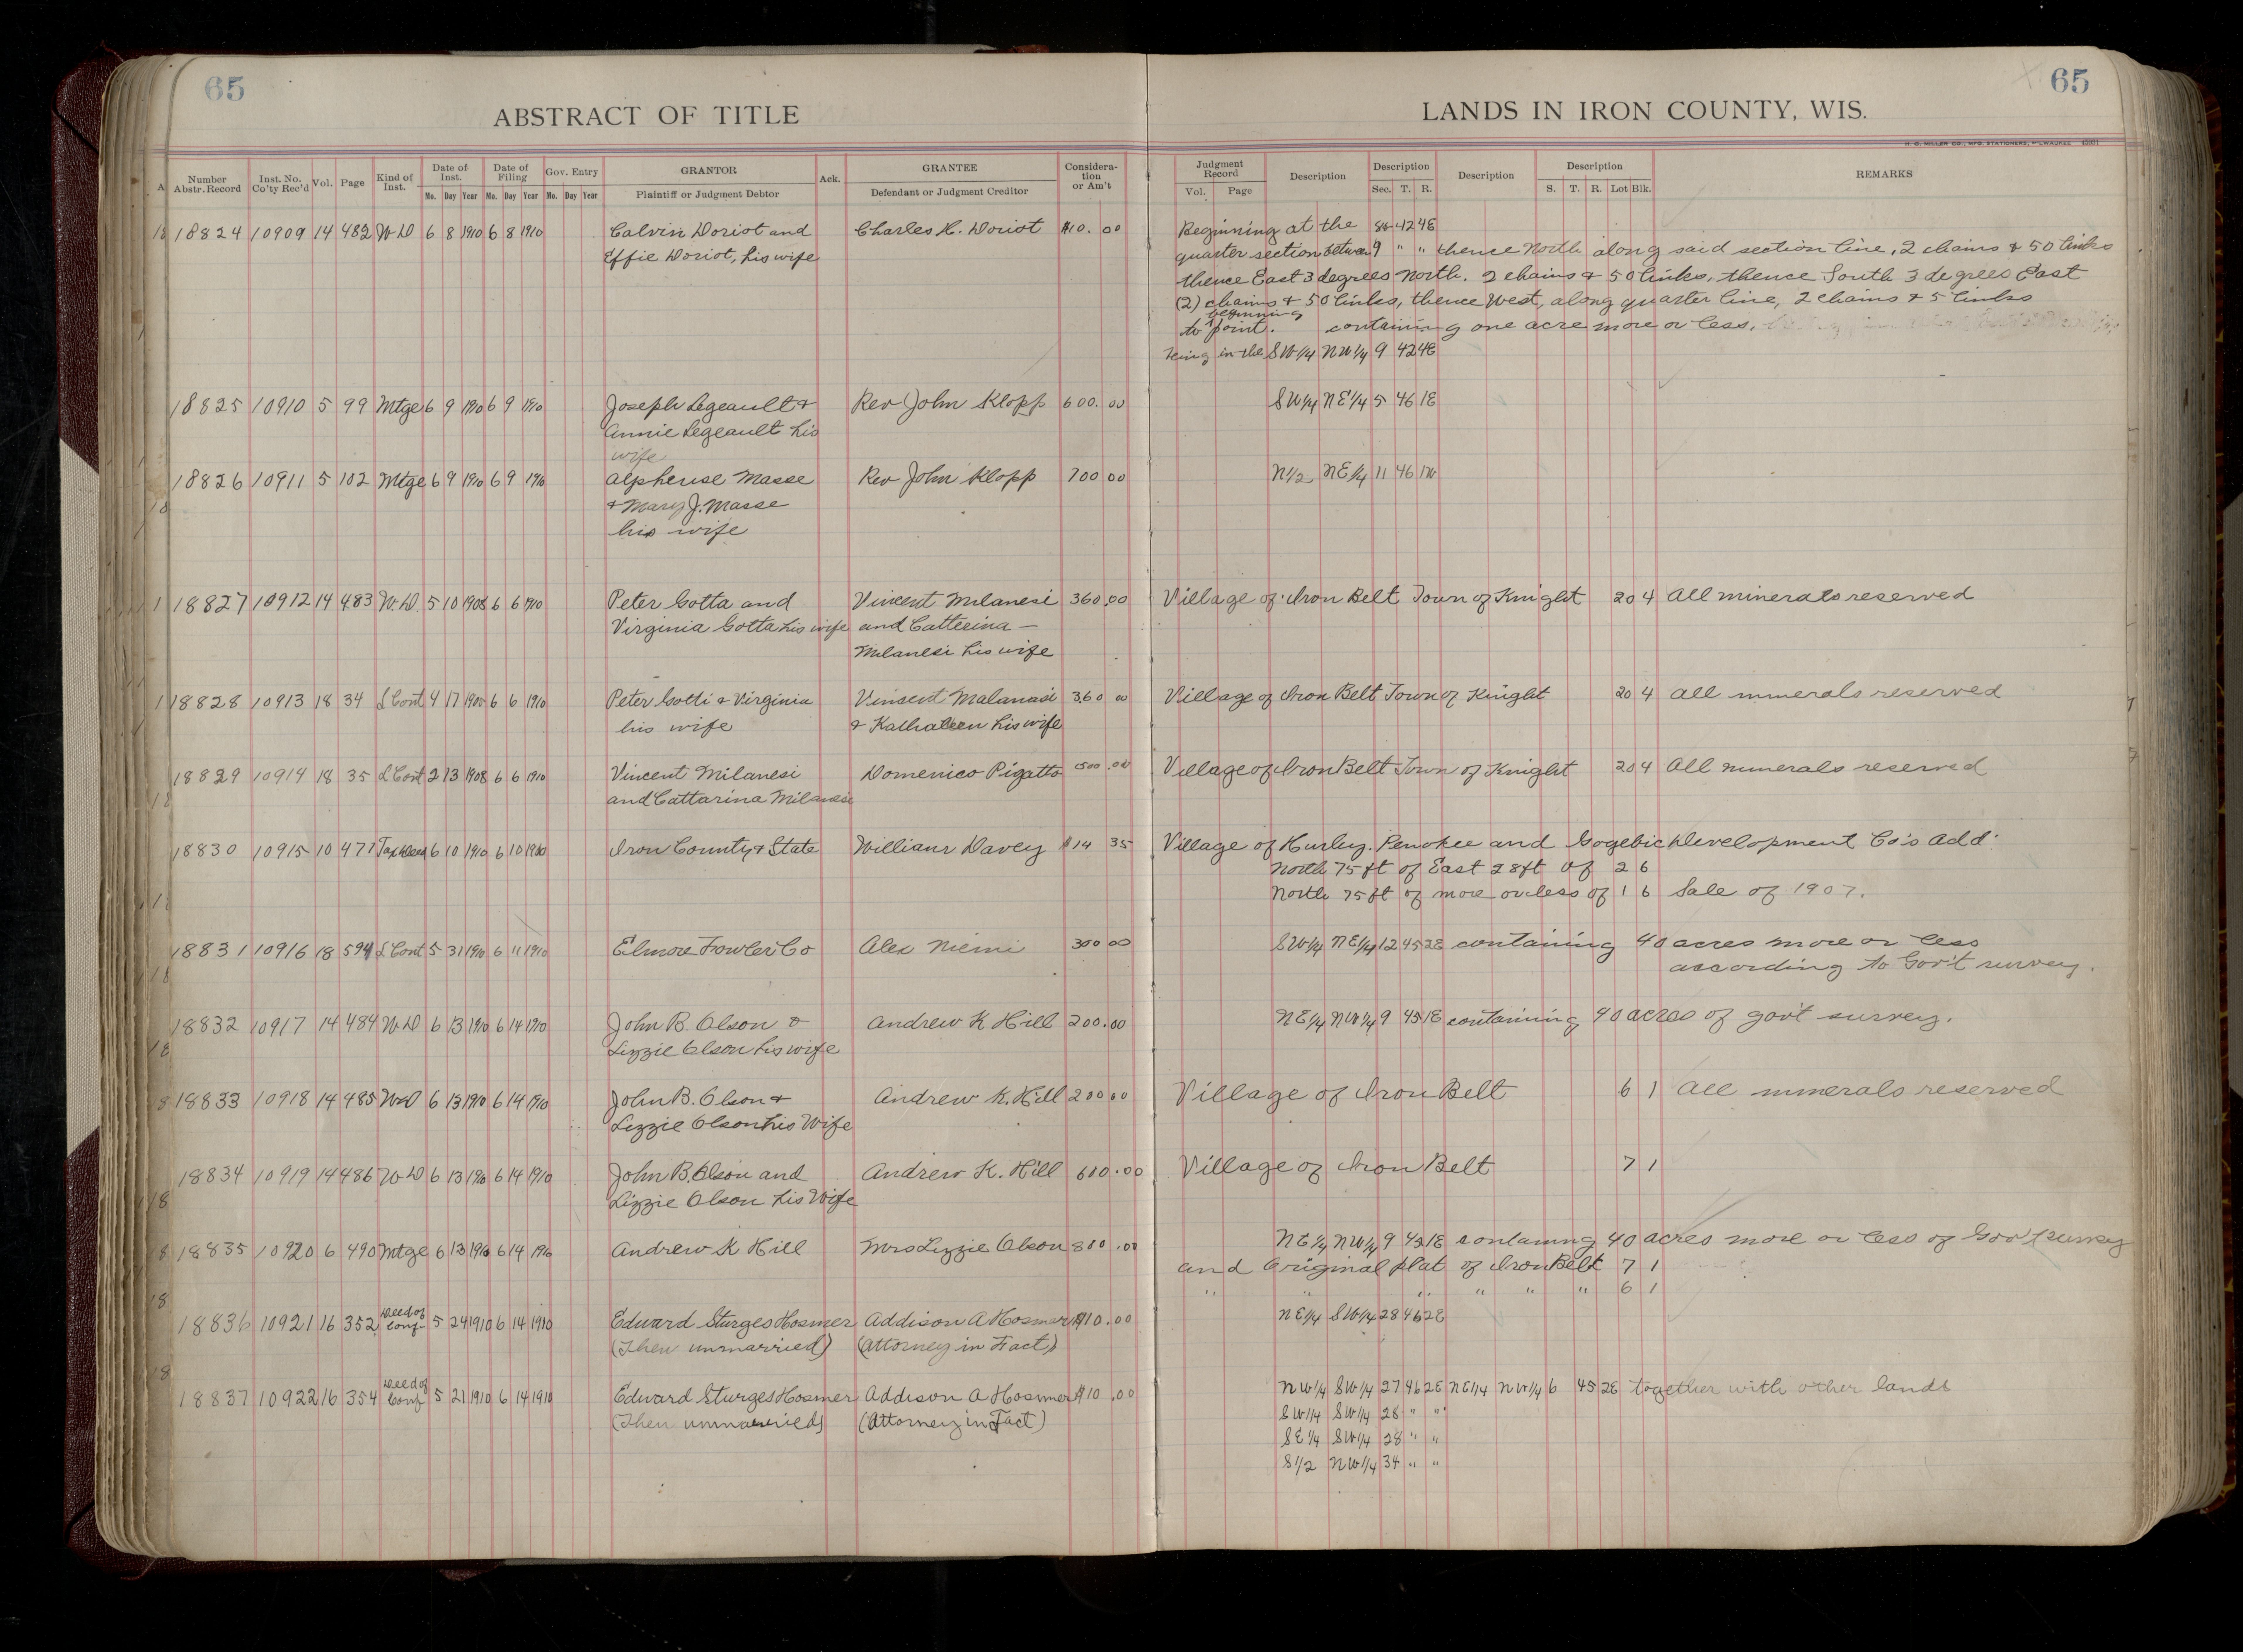 65
65
ABSTRACT OF TITLE
LANDS IN IRON COUNTY, WIS.
H. G. MILLER CO., MFG. STATIONERS, MILWAUKEE
Number Abstr. Record | Inst. No. Co'ty Rec'd | Vol. | Page | Kind of Inst. | Date of Inst. Mo. Day Year | Date of Filing Mo. Day Year | Gov. Entry Mo. Day Year | GRANTOR Plaintiff or Judgment Debtor | Ack. | GRANTEE Defendant or Judgment Creditor | Consideration or Am't | Judgment Record Vol. Page | Description | Description Sec. T. R. | Description | Description S. T. R. Lot Blk. | REMARKS
18824 10909 14 482 W D 6 8 1910 6 8 1910 Calvin Doriot and Charles H. Doriot $10.00 Beginning at the 8 42 4E
Effie Doriot, his wife quarter section between 9 " " thence North along said section line, 2 chains & 50 links
thence East 3 degrees North. 2 chains & 50 links, thence South 3 degrees East
(2) chains & 50 links, thence West, along quarter line, 2 chains & 5 links
to beginning point. containing one acre more or less.
being in the SW1/4 NW1/4 9 42 4E
18825 10910 5 99 Mtge 6 9 1910 6 9 1910 Joseph Legeault & Rev John Klopp 600.00 SW1/4 NE1/4 5 46 1E
Annie Legeault his
wife
18826 10911 5 102 Mtge 6 9 1910 6 9 1910 Alpheuse Masse Rev John Klopp 700 00 N1/2 NE1/4 11 46 1W
& Mary J. Masse
his wife
18827 10912 14 483 W.D. 5 10 1908 6 6 1910 Peter Gotta and Vincent Milanesi 360.00 Village of Iron Belt Town of Knight 20 4 All minerals reserved
Virginia Gotta his wife and Catterina —
Milanesi his wife
18828 10913 18 34 L Cont 4 17 1905 6 6 1910 Peter Gotti & Virginia Vinsent Malanasi 360 00 Village of Iron Belt Town of Knight 20 4 All minerals reserved
his wife & Kathaleen his wife
18829 10914 18 35 L Cont 2 13 1908 6 6 1910 Vincent Milanesi Domenico Pigatto 500.00 Village of Iron Belt Town of Knight 20 4 All minerals reserved
and Cattarina Milanesi
18830 10915 10 477 Tax Deed 6 10 1910 6 10 1910 Iron County & State William Davey $14 35 Village of Hurley. Penokee and Gogebic Development Co's Add.
North 75 ft of East 28 ft of 2 6
North 75 ft of more or less of 1 6 Sale of 1907.
18831 10916 18 594 L Cont 5 31 1910 6 11 1910 Elmore Fowler Co Alex Niemi 300 00 SW1/4 NE1/4 12 45 2E containing 40 acres more or less
according to Gov't survey.
18832 10917 14 484 W D 6 13 1910 6 14 1910 John B. Olson & Andrew K Hill 200.00 NE1/4 NW1/4 9 45 1E containing 40 acres of gov't survey.
Lizzie Olson his wife
18833 10918 14 485 W D 6 13 1910 6 14 1910 John B. Olson & Andrew K. Hill 200 00 Village of Iron Belt 6 1 All minerals reserved
Lizzie Olson his Wife
18834 10919 14 486 W D 6 13 1910 6 14 1910 John B. Olson and Andrew K. Hill 600.00 Village of Iron Belt 7 1
Lizzie Olson his Wife
18835 10920 6 490 Mtge 6 13 1910 6 14 1910 Andrew K Hill Mrs Lizzie Olson 800.00 NE1/4 NW1/4 9 45 1E containing 40 acres more or less of Gov't survey
and Original plat of Iron Belt 7 1
" " " " " 6 1
18836 10921 16 352 Deed of Conf 5 24 1910 6 14 1910 Edward Sturges Hosmer Addison A Hosmer $10.00 NE1/4 SW1/4 28 46 2E
(Then unmarried) (Attorney in Fact)
18837 10922 16 354 Deed of Conf 5 21 1910 6 14 1910 Edward Sturges Hosmer Addison A Hosmer $10.00 NW1/4 SW1/4 27 46 2E NE1/4 NW1/4 6 45 2E together with other lands
(Then unmarried) (Attorney in Fact) SW1/4 SW1/4 28 " "
SE1/4 SW1/4 28 " "
S1/2 NW1/4 34 " "